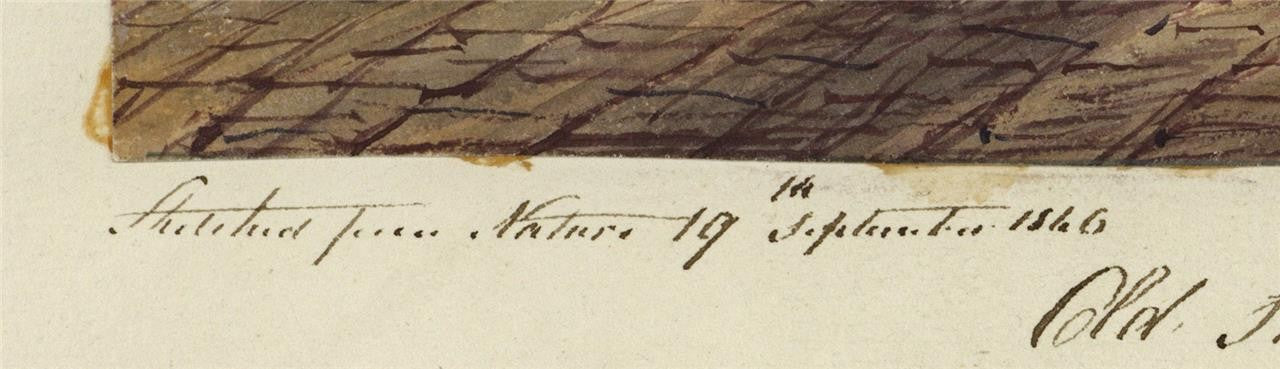 Sketched from Nature 19th September 1846
Old